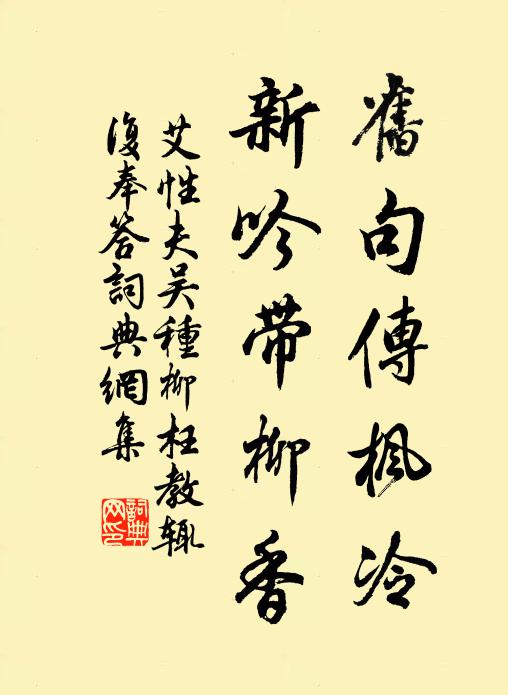 舊句傳楓冷
新吟帶柳香
艾性夫吳種柳枉教輒
復奉答詞典網集
詞典
网印